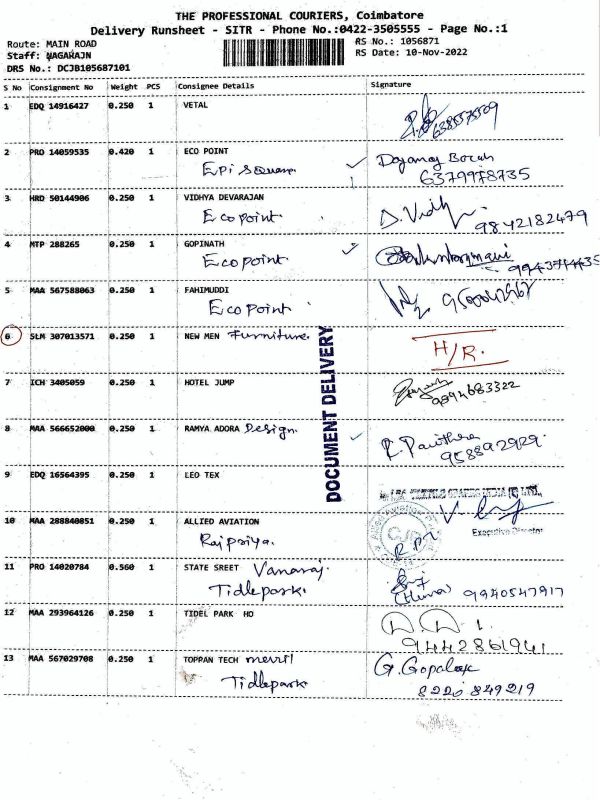 THE PROFESSIONAL COURIERS, Coimbatore
Delivery Runsheet - SITR - Phone No.:0422-3505555 - Page No.:1
Route: MAIN ROAD RS No.: 1056871
Staff: NAGARAJN RS Date: 10-Nov-2022
DRS No.: DCJB105687101
S No Consignment No Weight PCS Consignee Details Signature
1 EDQ 14916427 0.250 1 VETAL
2 PRO 14059535 0.420 1 ECO POINT
Epi square 6379978735
3 HRD 50144906 0.250 1 VIDHYA DEVARAJAN D. Vidhy
Ecopoint. 9842182479
4 MTP 288265 0.250 1 GOPINATH
Ecopoint
5 MAA 567588063 0.250 1 FAHIMUDDI
Eco point
6 SLM 307013571 0.250 1 NEW MEN Furniture. H/R.
7 ICH 3405059 0.250 1 HOTEL JUMP
9894683322
8 MAA 566652000 0.250 1 RAMYA ADORA Design.
958892929
DOCUMENT DELIVERY
9 EDQ 16564395 0.250 1 LEO TEX
10 MAA 288840851 0.250 1 ALLIED AVIATION Executive Director
Rajpriya.
11 PRO 14020784 0.560 1 STATE SREET Vanaraj.
Tidlepark. 9940547917
12 MAA 293964126 0.250 1 TIDEL PARK HO
9442861941
13 MAA 567029708 0.250 1 TOPPAN TECH merril G. Gopalak
Tidlepark 8220849219